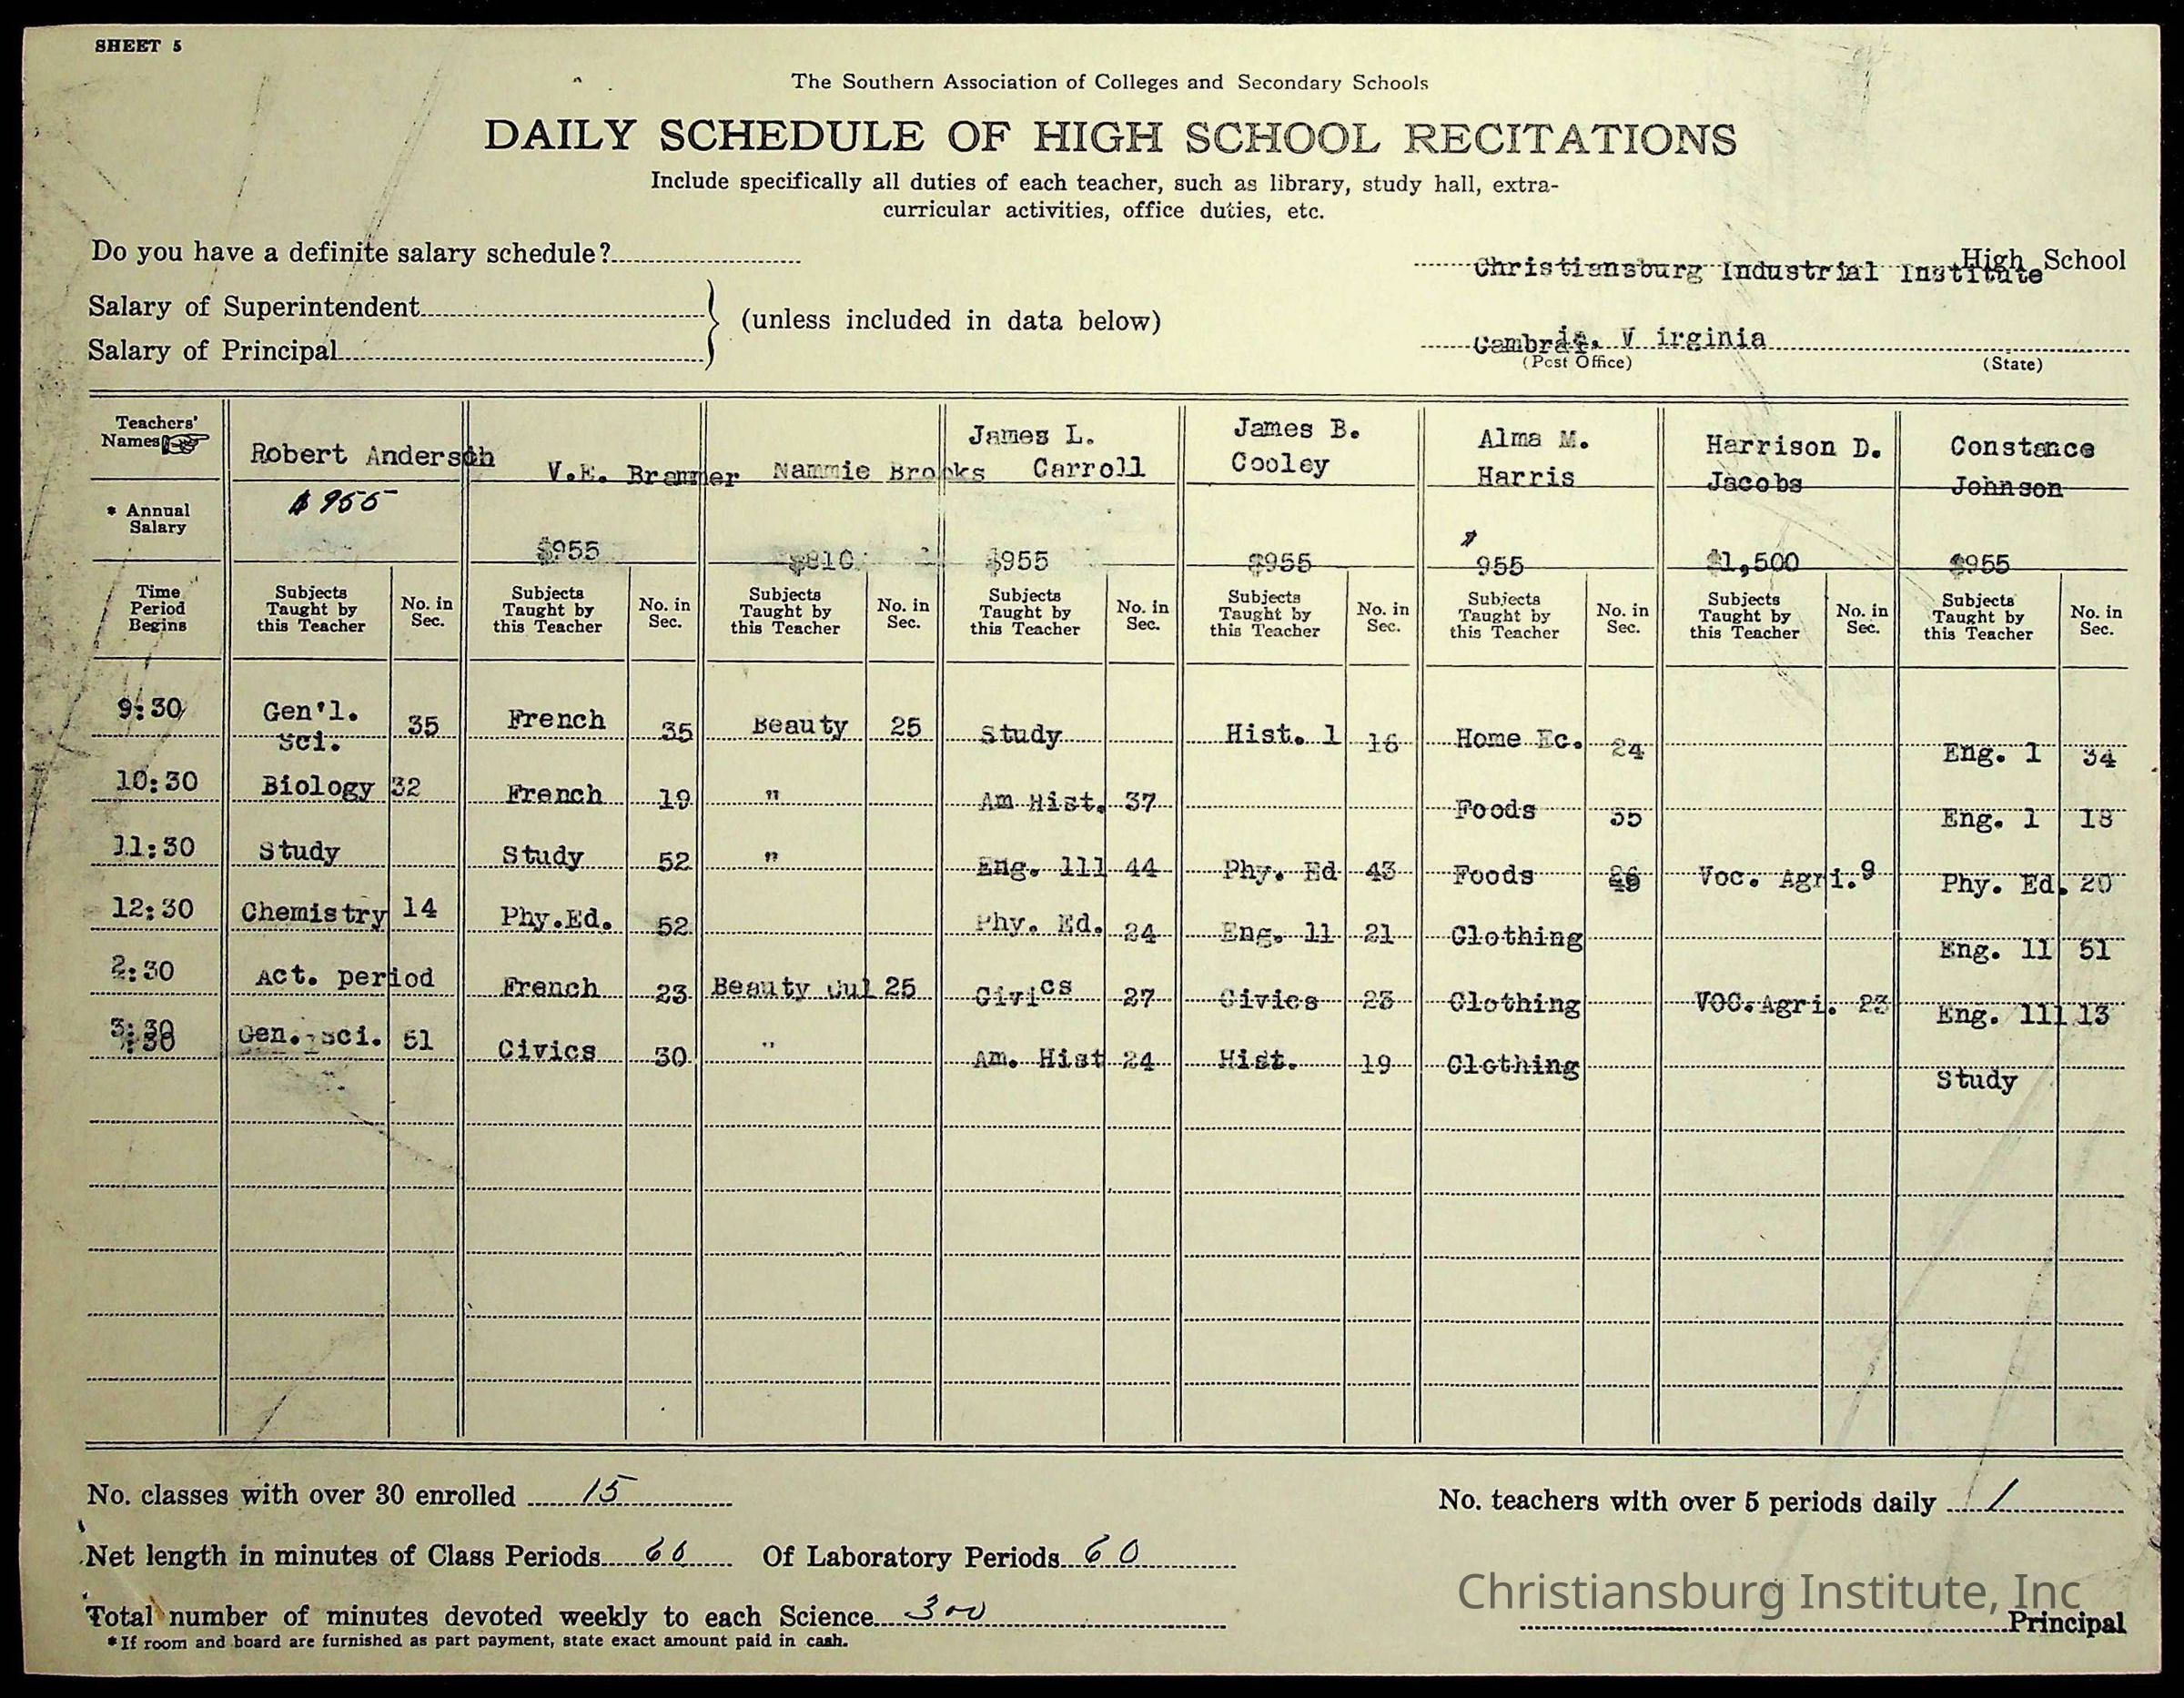 SHEET 5
The Southern Association of Colleges and Secondary Schools
DAILY SCHEDULE OF HIGH SCHOOL RECITATIONS
Include specifically all duties of each teacher, such as library, study hall, extra-
curricular activities, office duties, etc.
Do you have a definite salary schedule?
Christiansburg Industrial Institute High School
Salary of Superintendent
(unless included in data below)
Salary of Principal
Cambria, V irginia
(Post Office) (State)
Teachers' Names Robert Anderson V.E. Brammer Nammie Brooks James L. Carroll James B. Cooley Alma M. Harris Harrison D. Jacobs Constance Johnson
* Annual Salary $955 $955 $810 $955 $955 $955 $1,500 $955
Time Period Begins Subjects Taught by this Teacher No. in Sec. Subjects Taught by this Teacher No. in Sec. Subjects Taught by this Teacher No. in Sec. Subjects Taught by this Teacher No. in Sec. Subjects Taught by this Teacher No. in Sec. Subjects Taught by this Teacher No. in Sec. Subjects Taught by this Teacher No. in Sec. Subjects Taught by this Teacher No. in Sec.
9:30 Gen'l. Sci. 35 French 35 Beauty 25 Study Hist. 1 16 Home Ec. 24 Eng. 1 34
10:30 Biology 32 French 19 " Am Hist. 37 Foods 35 Eng. 1 18
11:30 Study Study 52 " Eng. 111 44 Phy. Ed 43 Foods Voc. Agri. 9 Phy. Ed. 20
12:30 Chemistry 14 Phy.Ed. 52 Phy. Ed. 24 Eng. 11 21 Clothing Eng. 11 51
2:30 Act. period French 23 Beauty Cul 25 Civics 27 Civics 23 Clothing VOC.Agri. 23 Eng. 111 13
3:30 Gen. Sci. 51 Civics 30 " Am. Hist 24 Hist. 19 Clothing Study
No. classes with over 30 enrolled 15
No. teachers with over 5 periods daily 1
Net length in minutes of Class Periods 60 Of Laboratory Periods 60
Total number of minutes devoted weekly to each Science 300
Christiansburg Institute, Inc
Principal
*If room and board are furnished as part payment, state exact amount paid in cash.